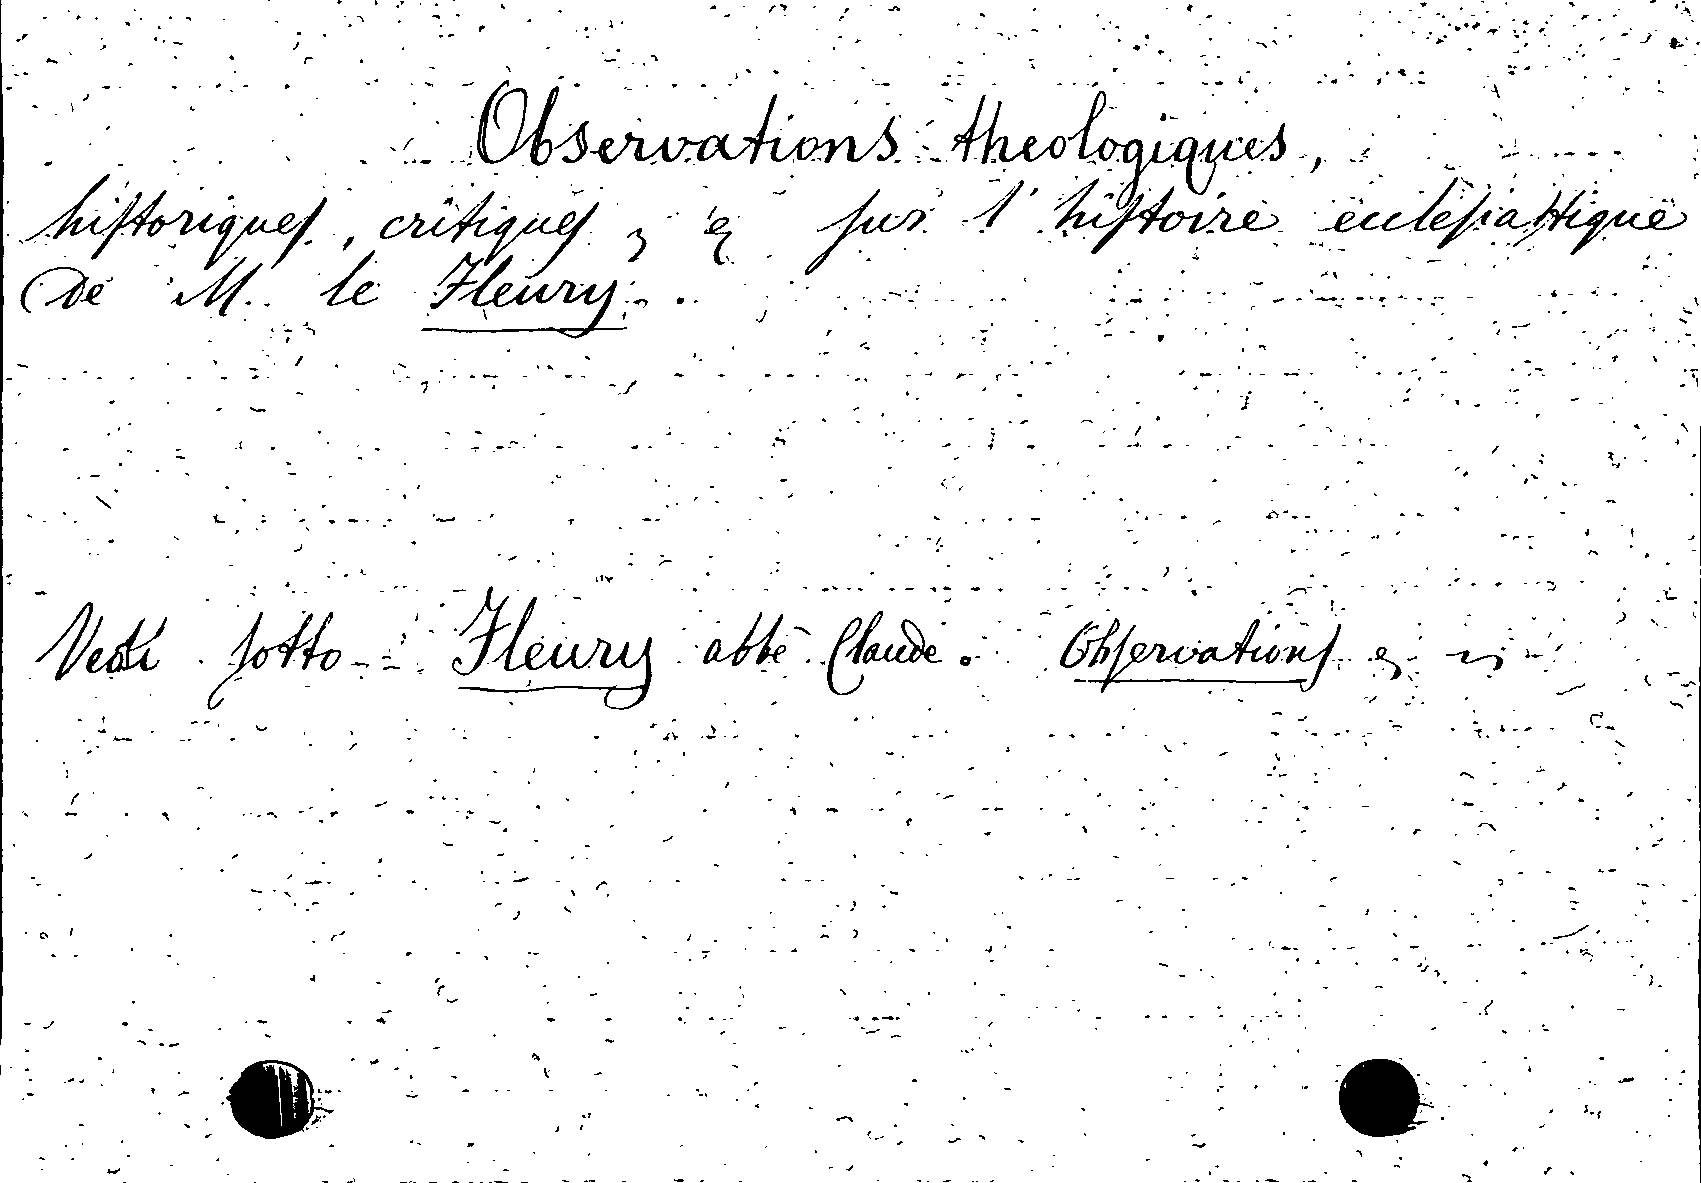 Observations theologiques,
historiques, critiques, & sur l'histoire ecclesiastique
de M. le Fleury.
Vedi sotto Fleury abbé Claude. Observations